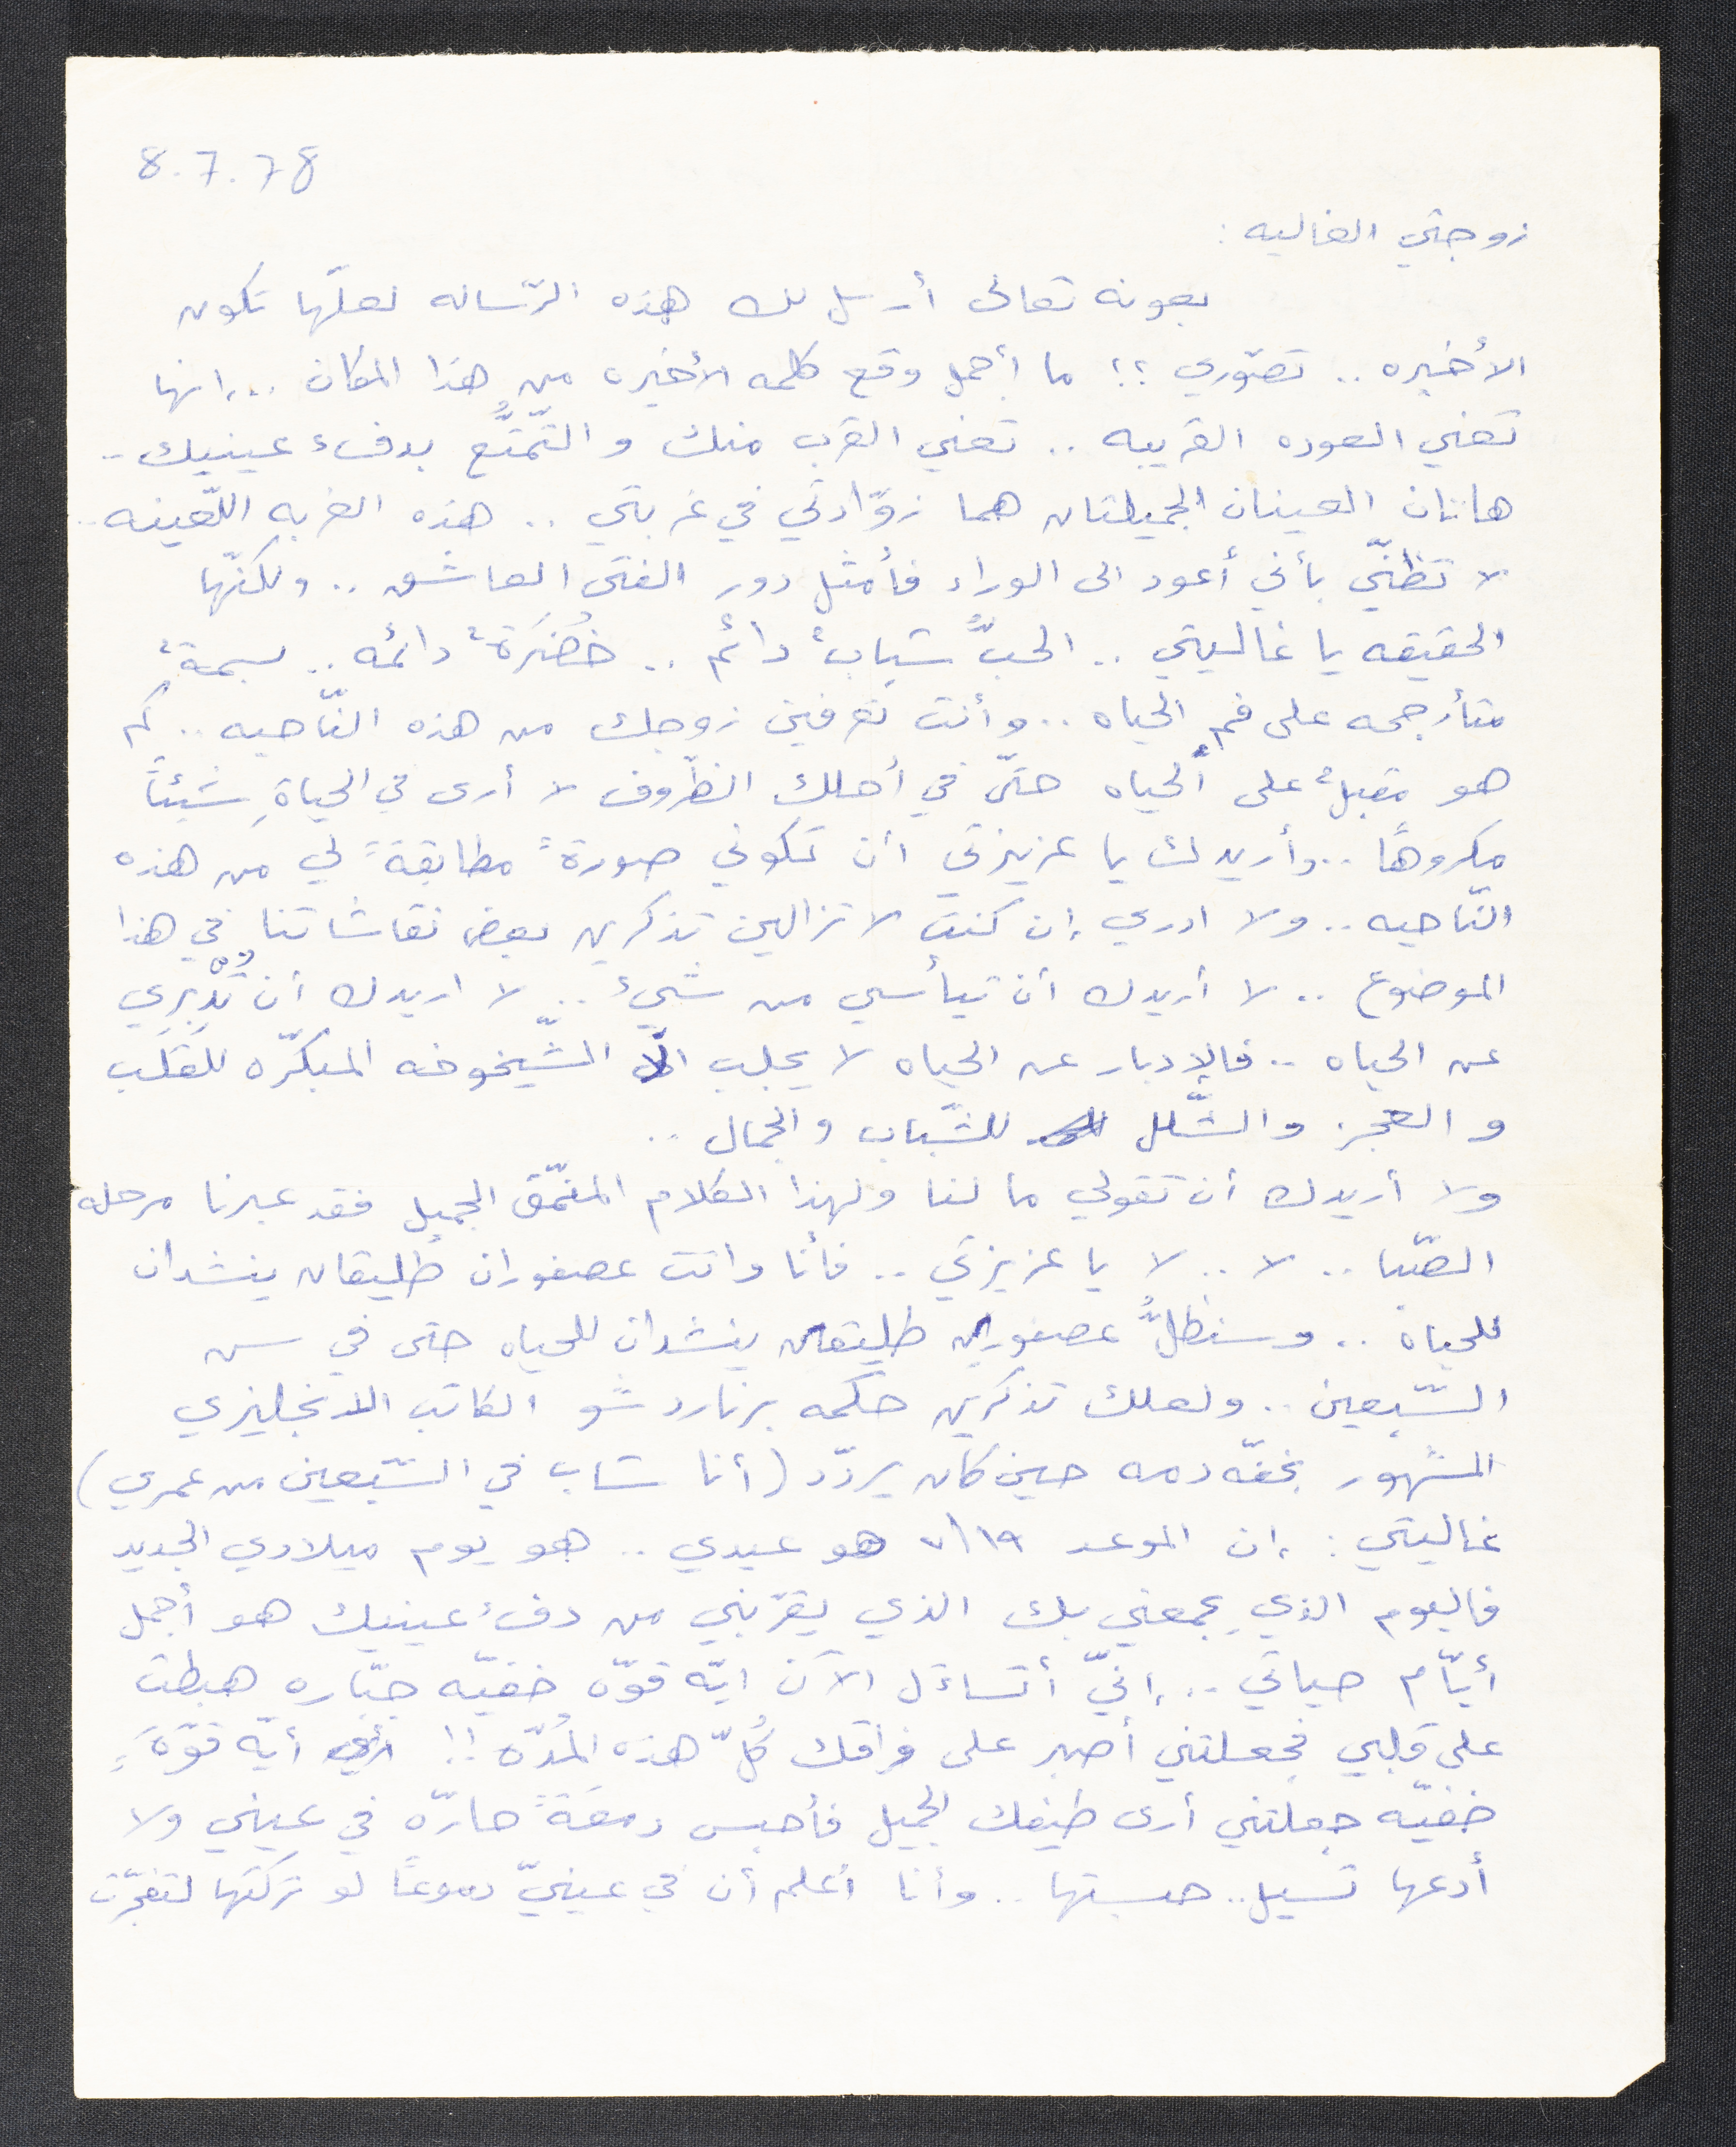 8.7.78
زوجتي الغاليه :
بعونه تعالى أرسل لك هذه الرّساله لعلّها تكون
الأخيره .. تصّوري ؟؟ ما أجمل وقع كلمه الأخيره من هذا المكان .. إنها
تعني العوده القريبه .. تعني القرب منك و التّمتُّع بدفء عينيك ..
هاتان العينان الجميلتان هما زوّادتي في غربتي .. هذه الغربه اللّعينه ..
لا تظنّي بأني أعود الى الوراء فأمثل دور الفتى العاشق .. ولكنّها
الحقيقه يا غاليتي .. الحبُّ شبابٌ دائم .. خُضَرَةٌ دائمه .. بسمةٌ
متأرجحه على فم الحياه .. وأنت تعرفين زوجك من هذه النّاحيه .. كم
هو مقبلٌ على الحياه حتّى في أحلك الظّروف لا أرى في الحياةِ شيئاً
مكروهاً .. وأريدك يا عزيزتي أن تكوني صورةً مطابقةً لي من هذه
النّاحيه .. ولا ادري إن كنتِ لا تزالين تذكرين بعض نقاشاتنا في هذا
الموضوع .. لا أريدك أن تيأسي من شيئ .. لا اريدك أن تُدْبِرِي
عن الحياه .. فالإدبار عن الحياه لا يجلب الّا الشّيخوخه المبكّره للقَلَب
و العجز والشّلل للشّباب والجمال ..
ولا أريدك أن تقولي ما لنا ولهذا الكلام المنمّق الجميل فقد عبرنا مرحله
الصّبا .. لا .. لا يا عزيزتي .. فأنا وانت عصفوران طليقان ينشدان
للحياة .. وسنظلُّ عصفورين طليقين ينشدان للحياه حتى في سن
السّبعين .. ولعلك تذكرين حكمه برنارد شو الكاتب الانجليزي
المشهور بخفّه دمه حين كان يردّد (أنا شاب في السّبعين من عمري)
غاليتي : إن الموعد ١٩/٧ هو عيدي .. هو يوم ميلادي الجديد
فاليوم الذي يجمعني بك الذي يقرّبني من دفء عينيك هو أجمل
أيّام حياتي .. إنيّ أتساءل الآن ايّه قوّه خفيّه جبّاره هبطت
على قلبي فجعلتني أصبر على فراقك كُلّ هذه المُدّه !! أيّه قوّةٍ
خفيّه جعلتني أرى طيفك الجميل فأحبس دمعَةً حارّه في عيني ولا
أدعها تسيل .. حبستها .. وأنا أعلم أن في عينيّ دموعاً لو تركتها لتفجّرت